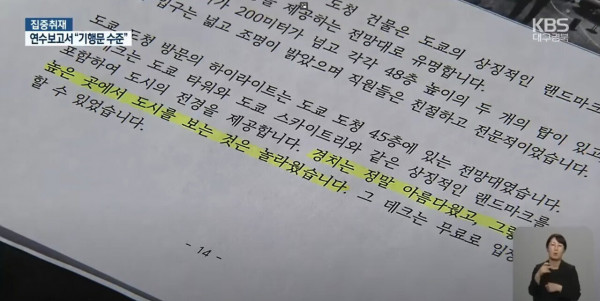 집중취재
연수보고서 “기행문 수준”
KBS
대구경북
제공하는 전망대로 유명합니다.
도청 건물은 도쿄의 상징적인 랜드마크
200미터가 넘고 각각 48층 높이의 두 개의 탑이 있고
입구는 넓고 조명이 밝았으며 직원들은 친절하고 전문적이었습니다.
도쿄 도청 방문의 하이라이트는 도쿄 도청 45층에 있는 전망대였습니다.
도쿄 타워와 도쿄 스카이트리와 같은 상징적인 랜드마크를
포함하여 도시의 전경을 제공합니다. 경치는 정말 아름다웠고,
높은 곳에서 도시를 보는 것은 놀라웠습니다. 그 데크는 무료로
할 수 있었습니다.
- 14 -